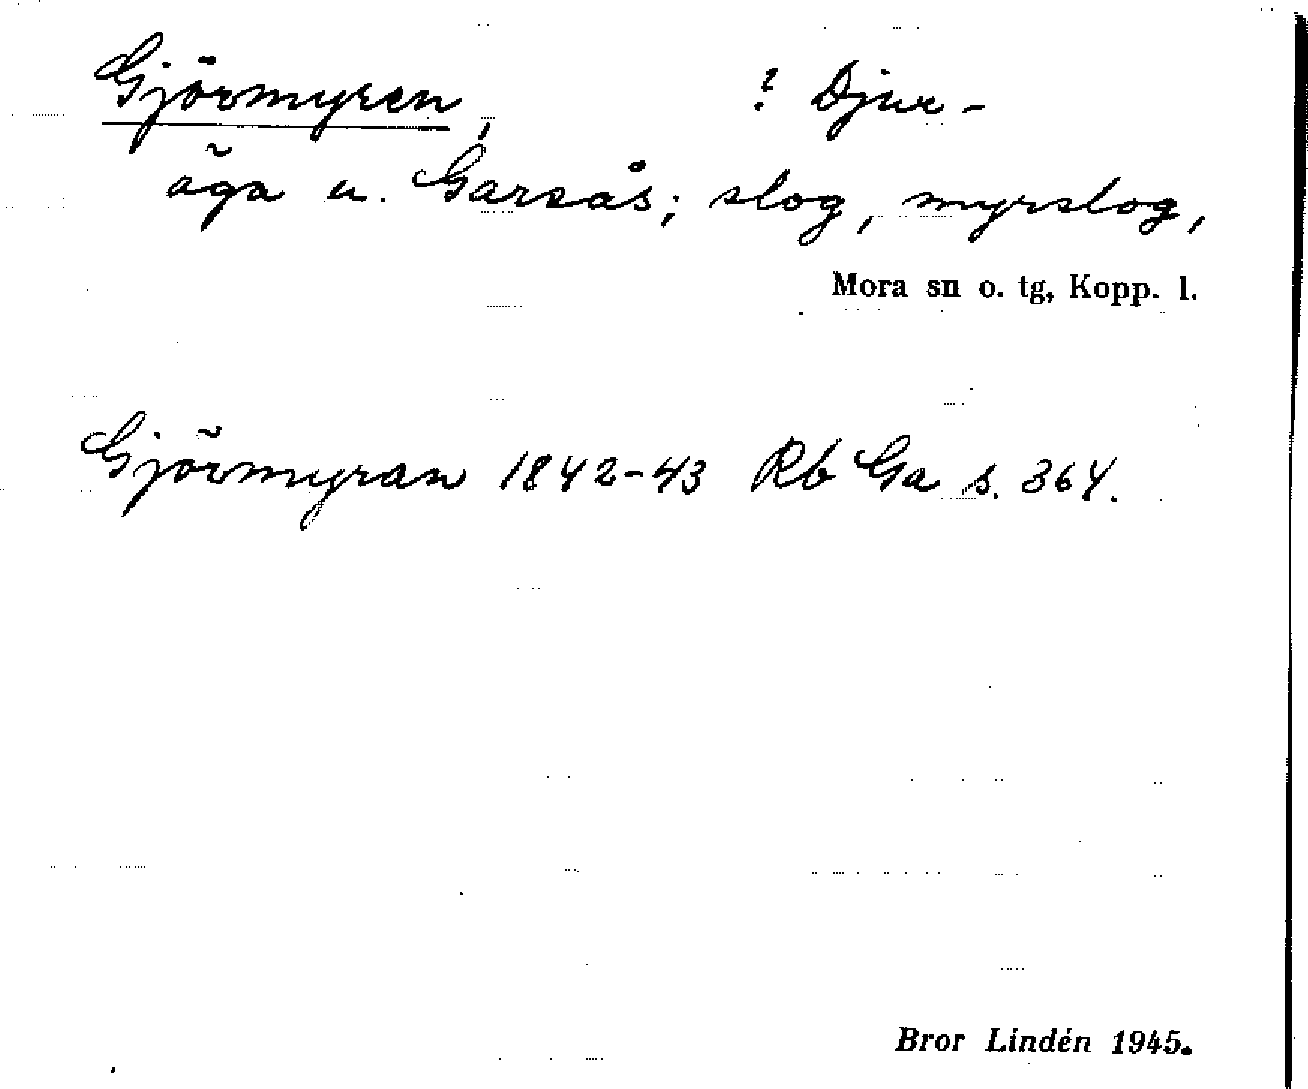 Gjörmyren, ? Djur-
äga u. Garsås; slog, myrslog,
Mora sn o. tg, Kopp. l.
Gjörmyran 1842-43 Rb Ga s. 364.
Bror Lindén 1945.